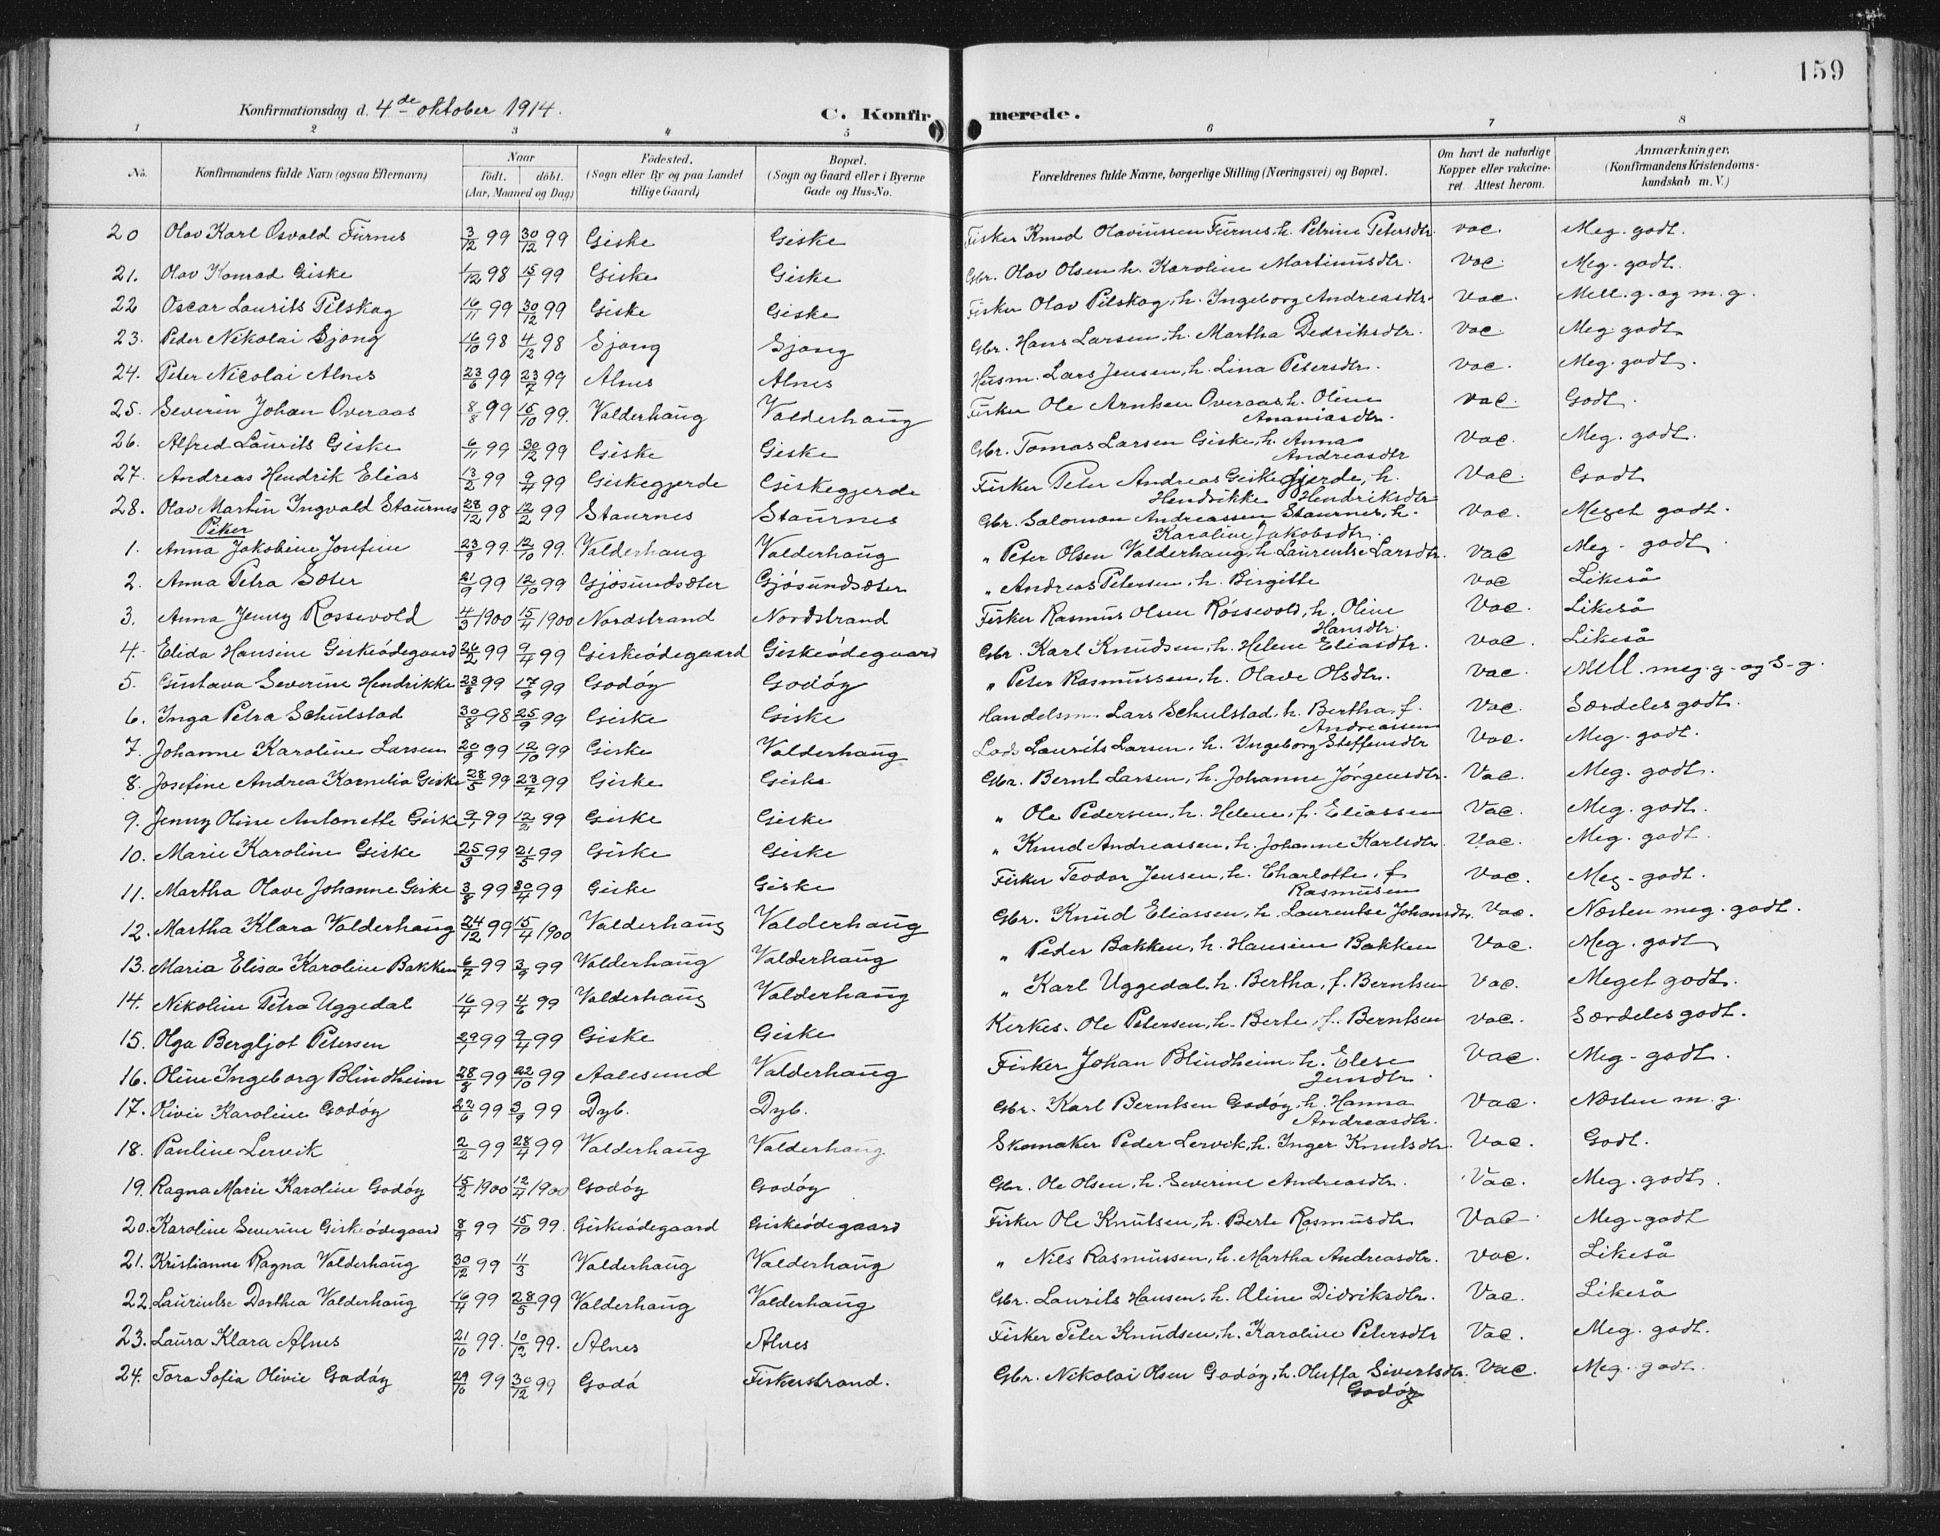 159
Konfirmationsdag d. 4de oktober 1914. C. Konfirmerede.
1 2 3 4 5 6 7 8
No. Konfirmandens fulde Navn (ogsaa Efternavn) Naar födt. döbt. (Aar, Maaned og Dag) Födested. (Sogn eller By og paa Landet tillige Gaard) Bopæl. (Sogn og Gaard eller i Byerne Gade og Hus-No. Forældrenes fulde Navne, borgerlige Stilling (Næringsvei) og Bopæl. Om havt de naturlige Kopper eller vakcineret. Attest herom. Anmærkninger. (Konfirmandens Kristendomskundskab m. V.)
20 Olav Karl Osvald Furnes 3/12 99 30/12 99 Giske Giske Fisker Knud Olaviussen Furnes, h. Petrine Petersdtr. vac. Meg. godt.
21. Olav Konrad Giske 1/12 98 15/1 99 Giske Giske Gbr. Olav Olsen h. Karoline Martinusdtr. vac. Meg. godt.
22 Oscar Laurits Pilskog 16/11 99 30/12 99 Giske Giske Fisker Olav Pilskog, h. Ingeborg Andreasdtr. Vac. Mell. g. og m. g.
23. Peder Nikolai Gjong 16/10 98 4/12 98 Gjong Gjong Gbr. Hans Larsen, h. Martha Dedriksdtr. vac. Meg godt
24. Peter Nicolai Alnes 23/6 99 23/7 99 Alnes Alnes Husm. Lars Jensen, h. Lina Petersdtr. vac. Meg. godt.
25. Severin Johan Overaas 8/8 99 15/10 99. Valderhaug Valderhaug Fisker Ole Arntsen Overaas h. Oline Ananiasdtr. vac. Godt.
26. Alfred Laurits Giske 6/11 99 30/12 99 Giske Giske Gbr. Tomas Larsen Giske, h. Anna Andreasdtr Vac. Meg. godt.
27. Andreas Hendrik Elias 13/2 99 9/4 99 Giskegjerde Giskegjerde Fisker Peter Andreas Giskegjerde, h. Hendrikke Hendriksdtr Vac. Godt
28. Olav Martin Ingvald Staurnes 28/12 98 12/2 99 Staurnes Staurnes Gbr. Salomon Andreassen Staurnes, h. Karoline Jakobsdtr. Vac. Meget godt.
Piker
1. Anna Jakobine Josefine 23/9 99. 12/10 99. Valderhaug Valderhaug " Peter Olsen Valderhaug, h. Laurentse Larsdtr. vac Meg - godt
2. Anna Petra Sæter 21/9 99 12/10 99 Gjösundsæter Gjösundsæter " Andreas Petersen, h. Birgitte vac Likeså
3. Anna Jenny Rossevold 4/3 1900 15/4 1900 Nordstrand Nordstrand Fisker Rasmus Olsen Róssevold, h. Oline Hansdtr. Vac. Likeså
4. Elida Hansine Giskeödegaard 26/2 99 9/4 99 Giskeödegaard Giskeödegaard Gbr. Karl Knudsen, h. Helene Eliasdtr. vac. Likeså
5. Gustava Severine Hendrikke 23/8 99 17/9 99 Godöy Godöy " Peter Rasmussen, h. Olave Olsdtr. vac. Mell. meg. g. og S-g.
6. Inga Petra Schulstad 30/8 98 25/9 99 Giske Giske Handelsm. Lars Schulstad, h. Bertha, f. Andreassen Vac. Særdeles godt.
7. Johanne Karoline Larsen 20/9 99 12/10 99 Giske Valderhaug Lods Laurits Larsen, h. Ingeborg Steffensdtr Vac. Meg. godt.
8. Josefine Andrea Kornelia Giske 28/5 99 23/7 99 Giske Giske Gbr. Bernt Larsen, h. Johanne Jörgensdtr. Vac. Meg. godt.
9. Jenny Oline Antonette Giske 9/1 99 12/2 99 Giske Giske " Ole Pedersen, h. Helene, f. Eliassen Vac. Meg. godt.
10. Marie Karoline Giske 25/3 99 21/5 99 Giske Giske " Knud Andreassen, h. Johanne Karlsdtr. Vac. Meg. godt
11. Martha Olave Johanne Giske 3/8 99 30/4 99 Giske Giske Fisker Teodor Jensen, h. Charlotte, f Rasmusen Vac. Meg. godt.
12. Martha Klara Valderhaug 24/12 99 15/4 1900 Valderhaug Valderhaug Gbr. Knud Eliassen, h. Laurentse Johansdtr. Vac. Næsten meg. godt.
13. Maria Elisa Karoline Bakken 6/7 99 3/9 99 Valderhaug Valderhaug " Peder Bakken, h. Hansine Bakken Vac. Meg. godt
14. Nikoline Petra Uggedal 16/4 99 4/6 99 Valderhaug Valderhaug " Karl Uggedal, h. Bertha, f. Berntsen Vac. Meget godt.
15. Olga Bergljot Petersen 29/1 99 9/4 99 Giske Giske Kerkes. Ole Petersen, h. Berte, f. Berntsen vac. Særdeles godt.
16. Oline Ingeborg Blindheim 28/8 99 22/10 99 Aalesund Valderhaug Fisker Johan Blindheim, h. Elese Jensdtr. Vac. Meg - godt.
17. Olivie Karoline Godöy 22/6 99 3/9 99 Dyb. Dyb. Gbr. Karl Berntsen Godöy, h. Hanna Andreasdtr. Vac. Næsten m. g.
18. Pauline Lervik 2/2 99 28/4 99 Valderhaug Valderhaug Skomaker Peder Lervik, h. Inger Knutsdtr. Vac. Godt.
19. Ragna Marie Karoline Godöy 15/2 1900 12/4 1900 Godöy Godöy Gbr. Ole Olsen, h. Severine Andreasdtr. Vac. Meg. godt.
20. Karoline Severine Giskeödegaard 8/9 99 15/10 99. Giskeödegaard Giskeödegaard Fisker Ole Knutsen, h. Berte Rasmusdtr Vac Meg. godt
21. Kristianne Ragna Valderhaug 30/12 99 11/3 Valderhaug Valderhaug " Nils Rasmussen, h. Martha Andreasdtr. vac. Likeså
22. Laurintse Dorthea Valderhaug 16/4 99 28/5 99 Valderhaug Valderhaug Gbr. Laurits Hansen, h. Oline Didriksdtr. Vac. Likeså
23. Laura Klara Alnes 21/10 99. 10/12 99. Alnes Alnes Fisker Peter Knudsen, h. Karoline Petersdtr Vac. Meg. godt.
24. Tora Sofia Olivie Godöy 29/10 99 30/12 99 Godö Fiskerstrand. Gbr. Nikolai Olsen Godöy, h. Oluffa Sivertsdtr. Godöy Vac. Meg. godt.